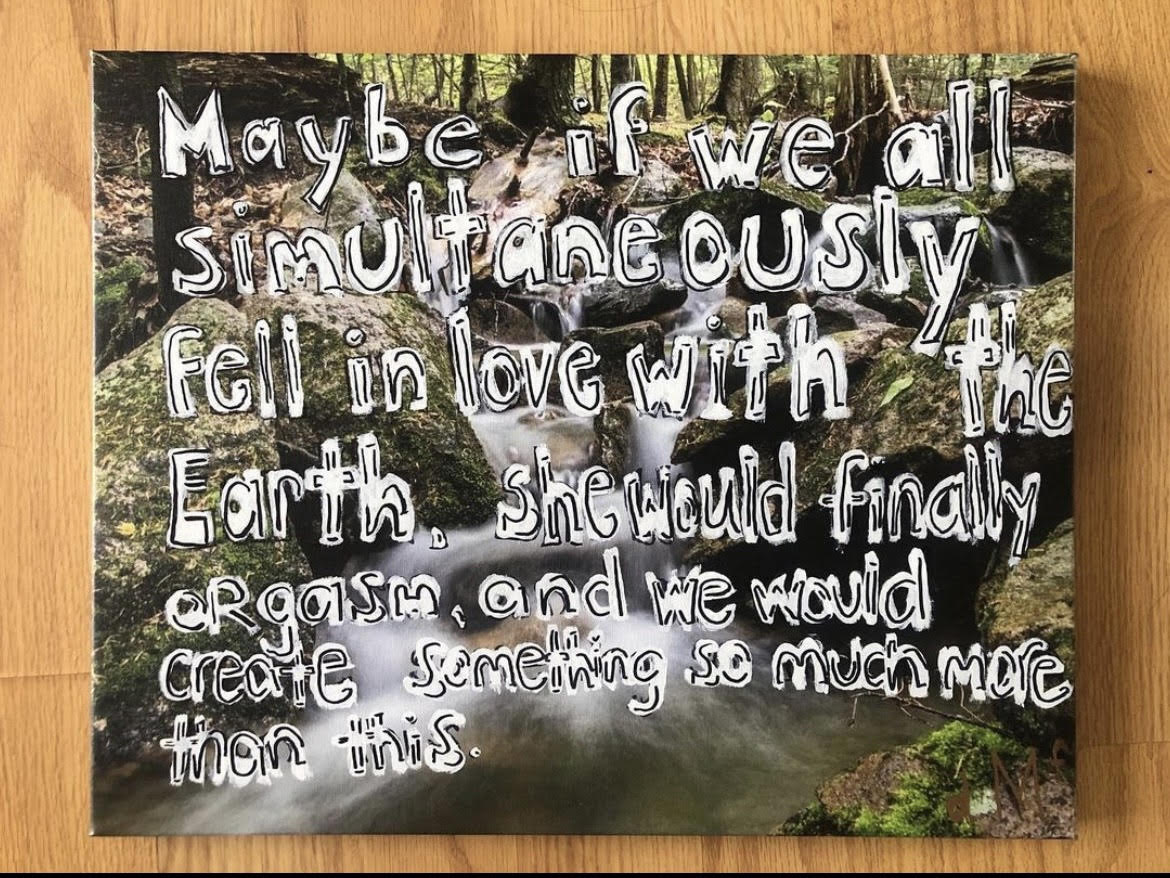 Maybe if we all
simultaneously
fell in love with the
Earth, she would finally
oRgasm, and we would
create something so much more
than this.